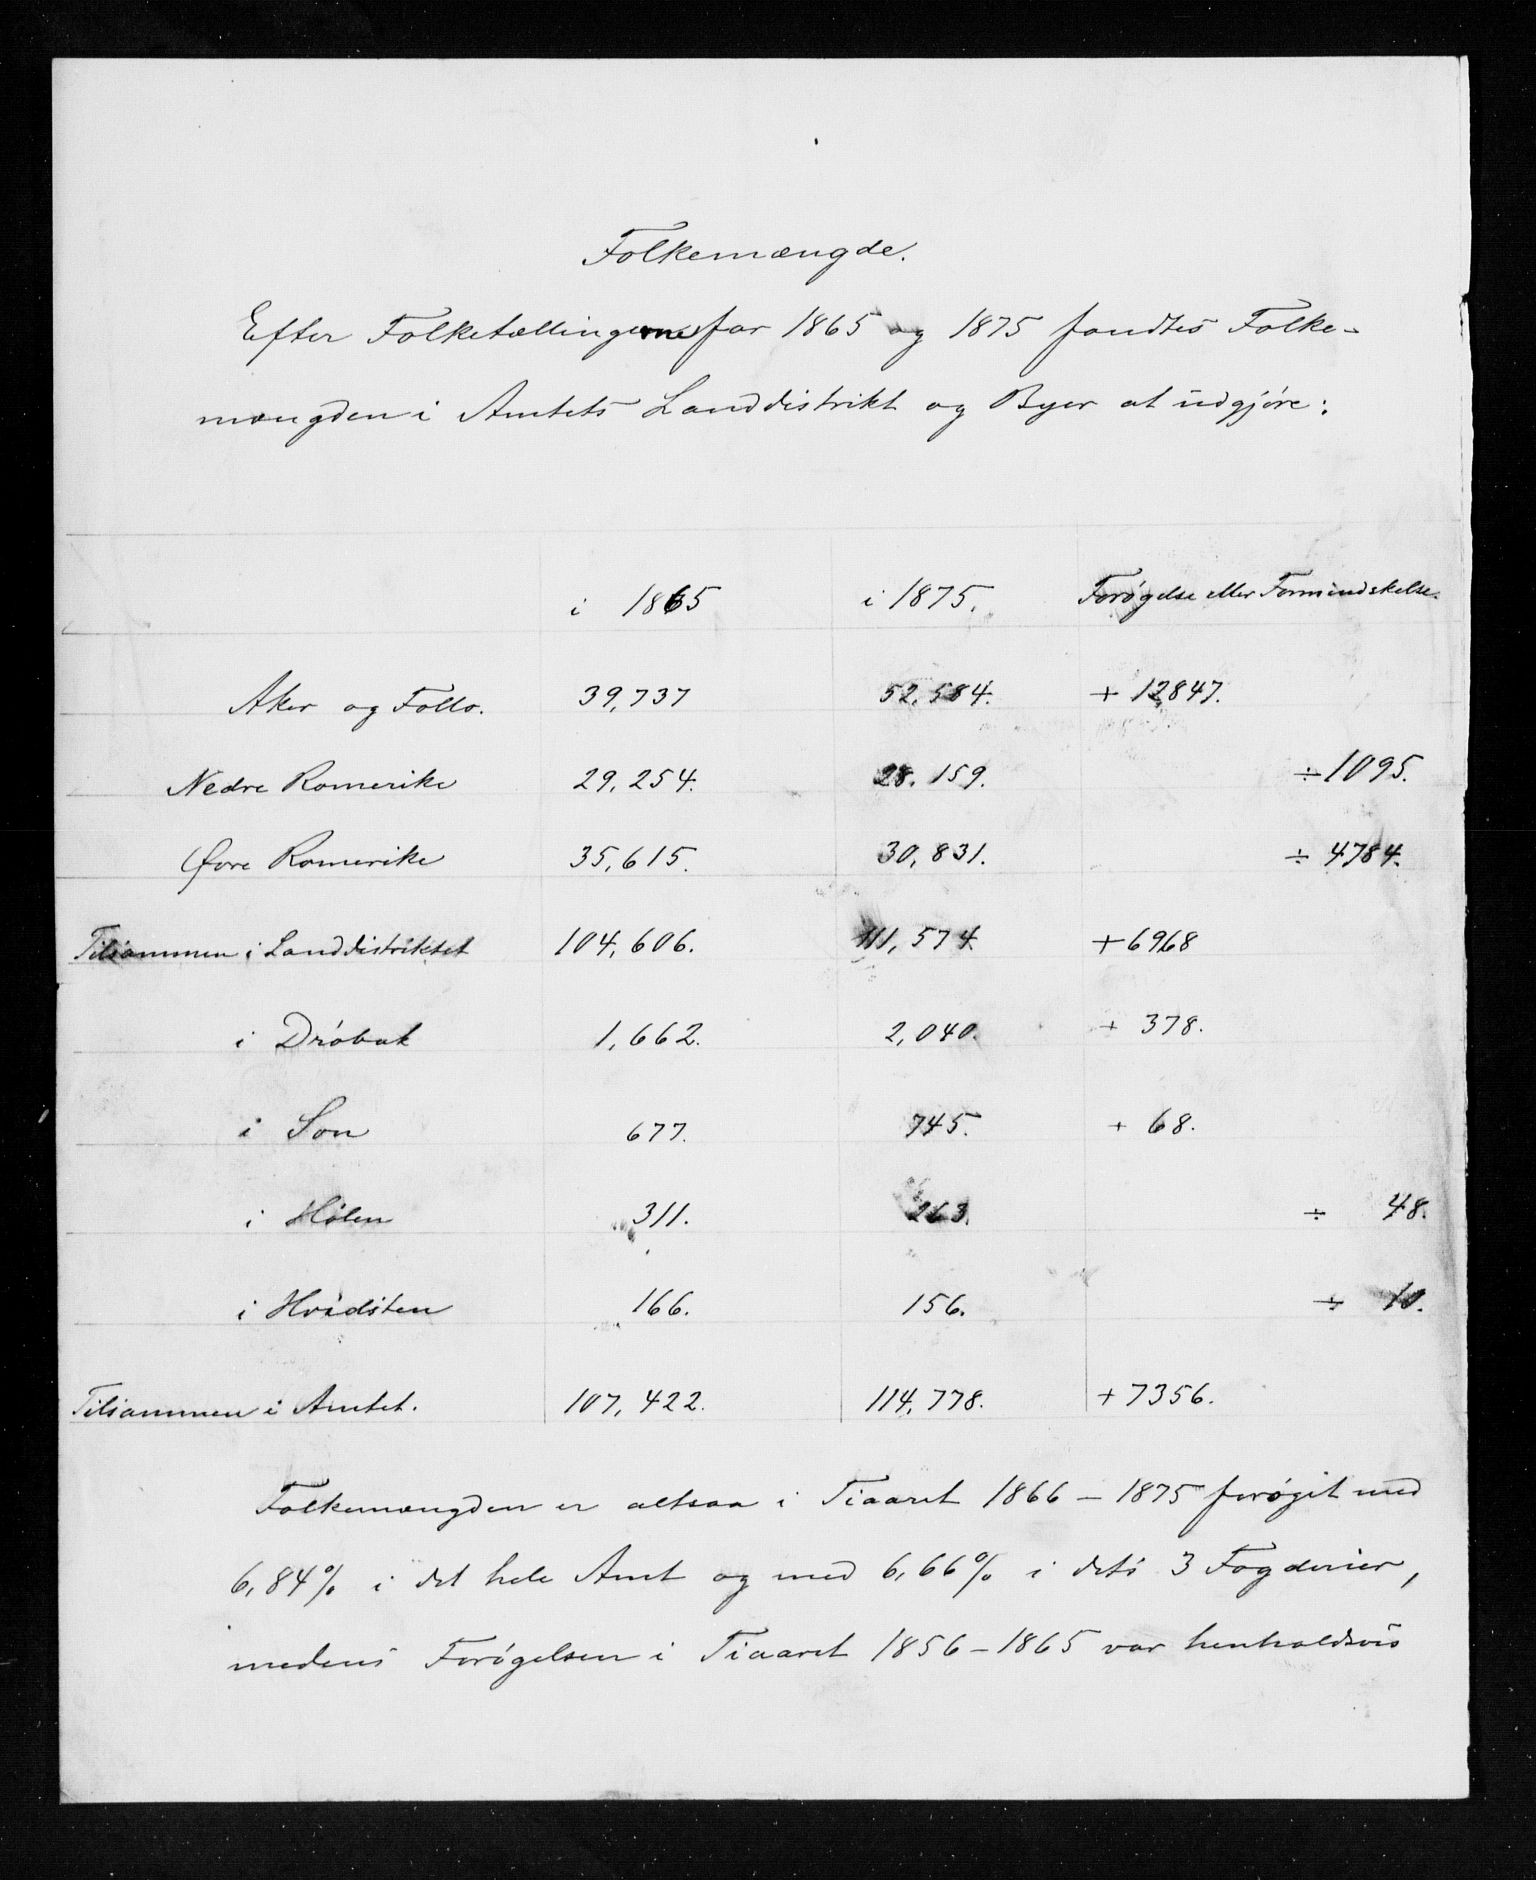 Folkemængde.
Efter Folketællingerne for 1865 og 1875 fandtes Folke-
mængden i Amtets Landdistrikt og Byer at udgjøre:
i 1865 i 1875. Forøgelse eller Formindskelse.
Aker og Follo. 39,737 52,584. + 12847.
Nedre Romerike 29,254. 28.159. ÷ 1095.
Øvre Romerike 35,615. 30,831. ÷ 4784.
Tilsammen i Landdistriktet 104,606. 111,574. + 6968
i Drøbak 1,662. 2,040. + 378.
i Son 677. 745. + 68.
i Hølen 311. 263. ÷ 48.
i Hvidsten 166. 156. ÷ 10.
Tilsammen i Amtet. 107,422. 114,778. + 7356.
Folkemængden er altsaa i Tiaaret 1866 – 1875 forøget med
6,84% i det hele Amt og med 6,66% i dets 3 Fogderier,
medens Forøgelsen i Tiaaret 1856 – 1865 var henholdsvis